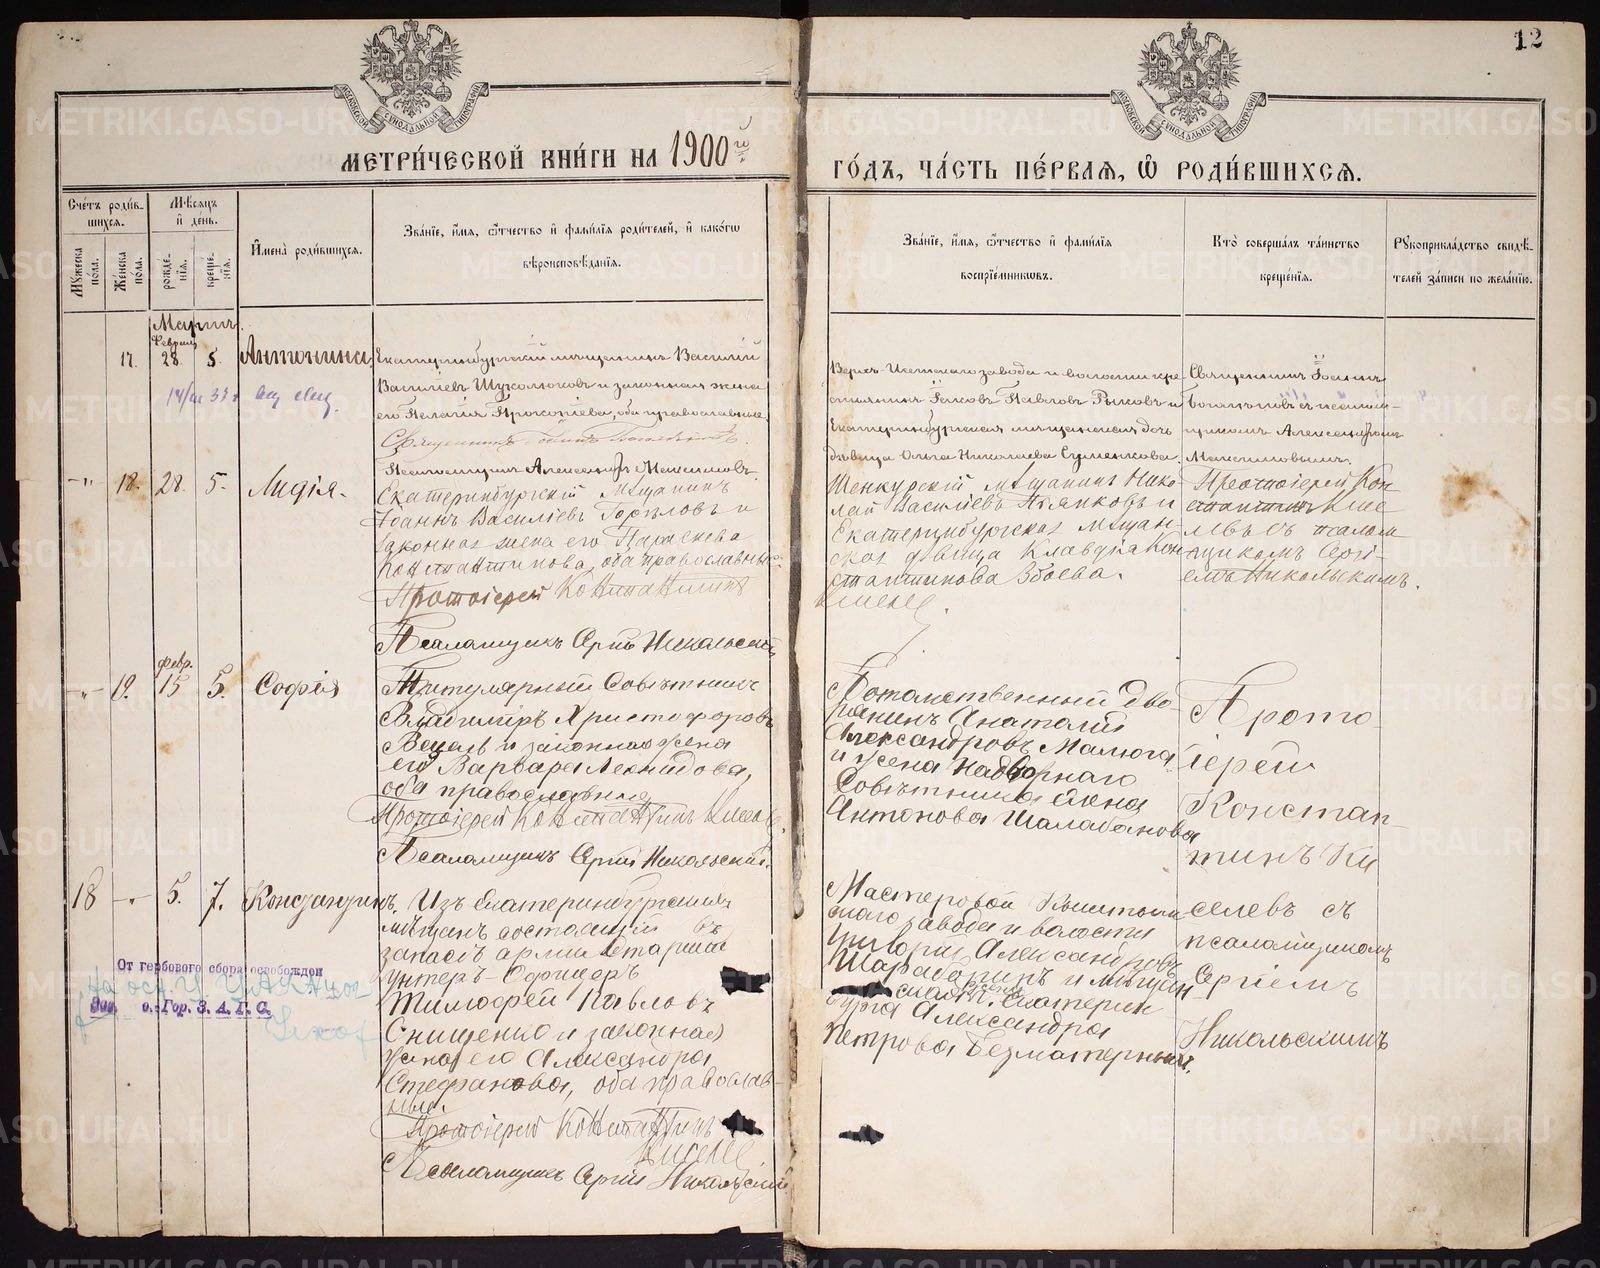 12
МОСКОВСКОЙ СИНОДАЛЬНОЙ ТИПОГРАФІИ
МОСКОВСКОЙ СИНОДАЛЬНОЙ ТИПОГРАФІИ
МЕТРИ́ЧЕСКОЙ КНИ́ГИ НА 1900й
ГО́ДЪ, ЧА́СТЬ ПЕ́РВАѦ, Ѡ҆ РОДИ́ВШИХСѦ.
Сче́тъ роди́в-
шихсѧ.
Мꙋ́жеска
пола.
Же́нска
пола.
Мѣ́сѧцъ
и҆ де́нь.
рожде́-
нїѧ.
креще́-
нїѧ.
И҆мена̀ роди́вшихсѧ.
Зва́нїе, и҆́мѧ, ѻ҆́тчество и҆ фами́лїѧ роди́телей, и҆ како́гѡ
вѣроисповѣ́данїѧ.
Зва́нїе, и҆́мѧ, ѻ҆́тчество и҆ фами́лїѧ
воспрїе́мникѡвъ.
Кто̀ соверша́лъ та́инство
креще́нїѧ.
Рꙋкоприкла́дство свидѣ́-
телей за́писи по жела́нїю.
Мартъ.
Февраль
17. 28. 5. Антонина,
Екатеринбургскій мѣщанинъ Василій
Васильевъ Шуколюковъ и законная жена
его Пелагія Прокопіева, оба православные.
Священникъ Іоаннъ
Псаломщикъ Александръ Максимовъ.
Верхъ-Исетскаго завода и волости кре-
стьянинъ Іаковъ Павловъ Рыковъ и
Екатеринбургская мѣщанская дочь
дѣвица Ольга Николаева Сушенкова.
Священникъ Іоаннъ
съ псалом-
щикомъ Александромъ
Максимовымъ.
-"- 18. 28. 5. Лидія.
Екатеринбургскій Мѣщанинъ
Іоаннъ Васильевъ Горѣловъ и
законная жена его Параскева
Константинова, оба православные.
Протоіерей Константинъ
Псаломщикъ Сергій Никольскій
Шенкурскій мѣщанинъ Нико-
лай Васильевъ и
Екатеринбургская мѣщан-
ская дѣвица Клавдія Кон-
стантинова Збоева.
Протоіерей Кон-
стантинъ Кисе-
левъ съ псалом-
щикомъ Сергі-
емъ Никольскимъ.
февр.
-"- 19. 15 5. Софія
Титулярный Совѣтникъ
Владиміръ Христофоровъ
и законная жена
его Варвара Леонидова,
оба православные
Протоіерей Константинъ Киселевъ
Псаломщикъ Сергій Никольскій.
Потомственный дво-
рянинъ Анатолій
Александровъ Малюга
и жена Надворнаго
Совѣтника Елена
Антонова Шалабанова
Прото-
іерей
Констан-
тинъ Ки
селевъ съ
псаломщикомъ
Сергіемъ
Никольскимъ
18 -"- 5. 7. Константинъ.
Изъ Екатеринбургскихъ
мѣщанъ состоящій въ
запасѣ арміи Старшій
унтеръ-Офицеръ
Тимофей Павловъ
Онищенко и законная
жена его Александра
Стефанова, оба православ-
ные.
Протоіерей Константинъ
Киселевъ
Псаломщикъ Сергій Никольскій
Мастеровой Кыштым
скаго завода и волости
Григорій Александровъ
и мѣщан
Екатерин
бурга Александра
Петрова Безматерныхъ.
От гербового сбора освобожден
Зав. о. Гор. З. А. Г. С.
METRIKI.GASO-URAL.RU